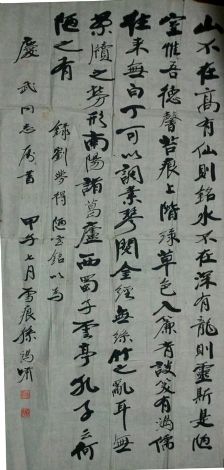 山不在高有仙則銘水不在深有龍則靈斯是陋
室惟吾德馨苔痕上階綠草色入簾青談笑有鴻儒
往來無白丁可以調素琴閱金經無絲竹之亂耳無
案牘之勞形南陽諸葛廬西蜀子雲亭孔子云何
陋之有
錄劉夢得陋室銘以為
慶武同志屬書 甲子七月雪痕